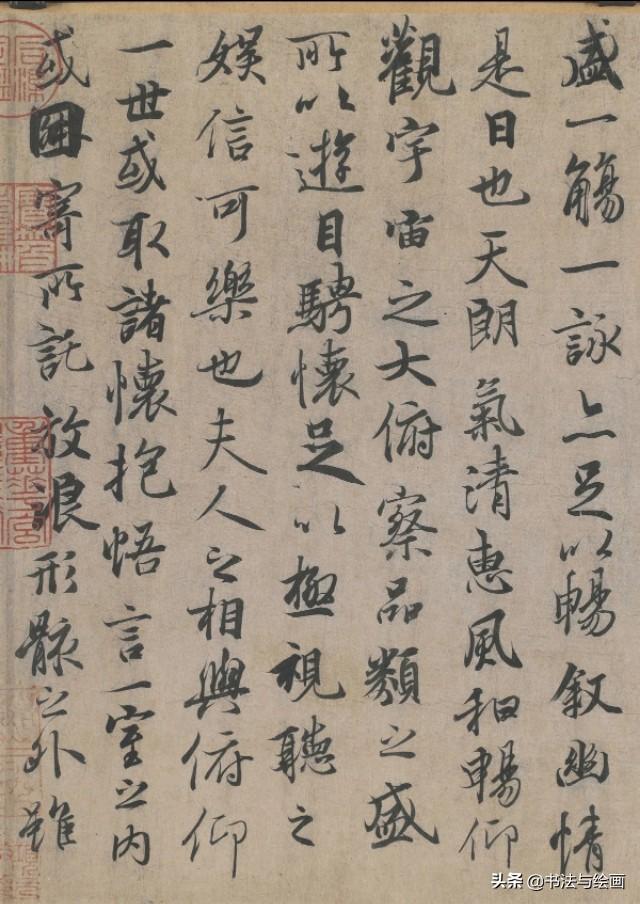 盛一觴一詠亦足以暢敘幽情
是日也天朗氣清惠風和暢仰
觀宇宙之大俯察品類之盛
所以遊目騁懷足以極視聽之
娛信可樂也夫人之相與俯仰
一世或取諸懷抱悟言一室之內
或因寄所託放浪形骸之外雖
头条 @书法与绘画